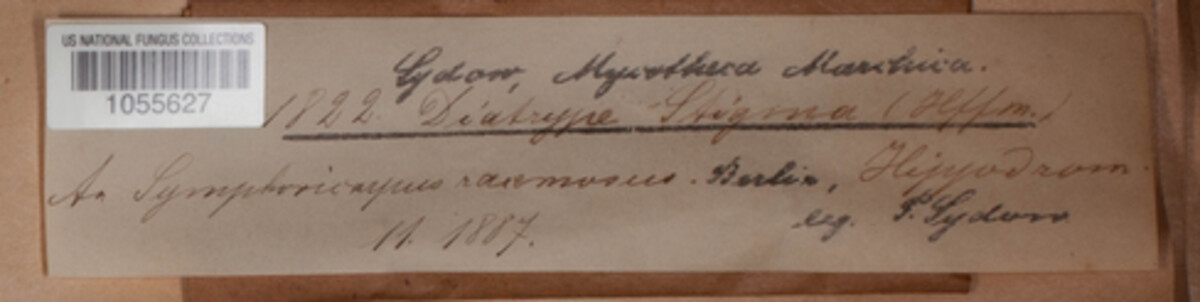 US NATIONAL FUNGUS COLLECTIONS
1055627
Sydow, Mycotheca Marchica.
1822. Diatrype Stigma (Hffm.)
An Symphoricarpus racemosus. Berlin, Hippodrom.
11. 1887.
leg. P. Sydow